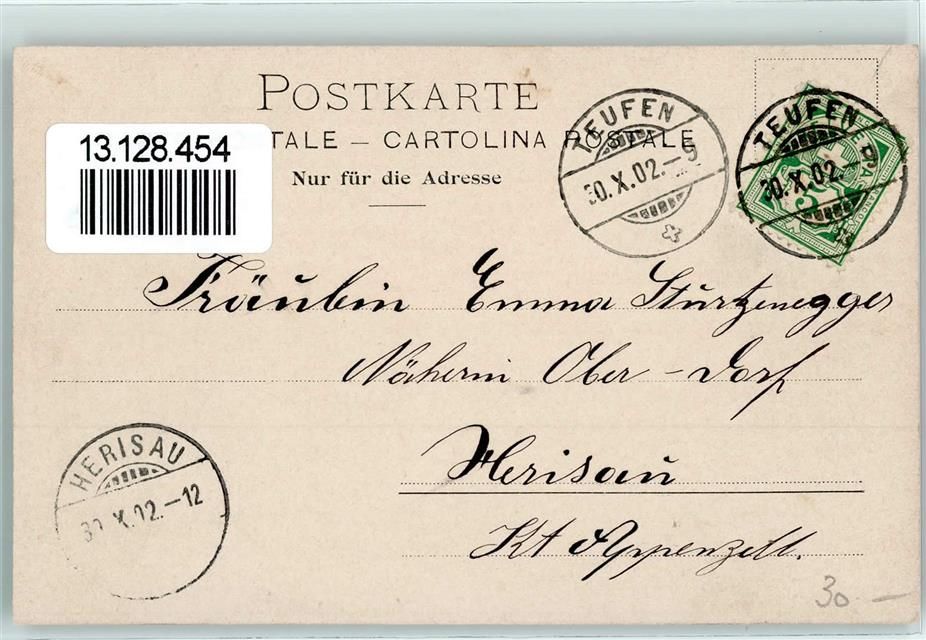 POSTKARTE
TALE – CARTOLINA POSTALE
Nur für die Adresse
13.128.454
TEUFEN
30.X.02.–9
TEUFEN
30.X.02.–9
Fräulein Emma Sturzenegger
Näherin Ober-Dorf
Herisau
Kt Appenzell.
HERISAU
30.X.02.–12
30 –